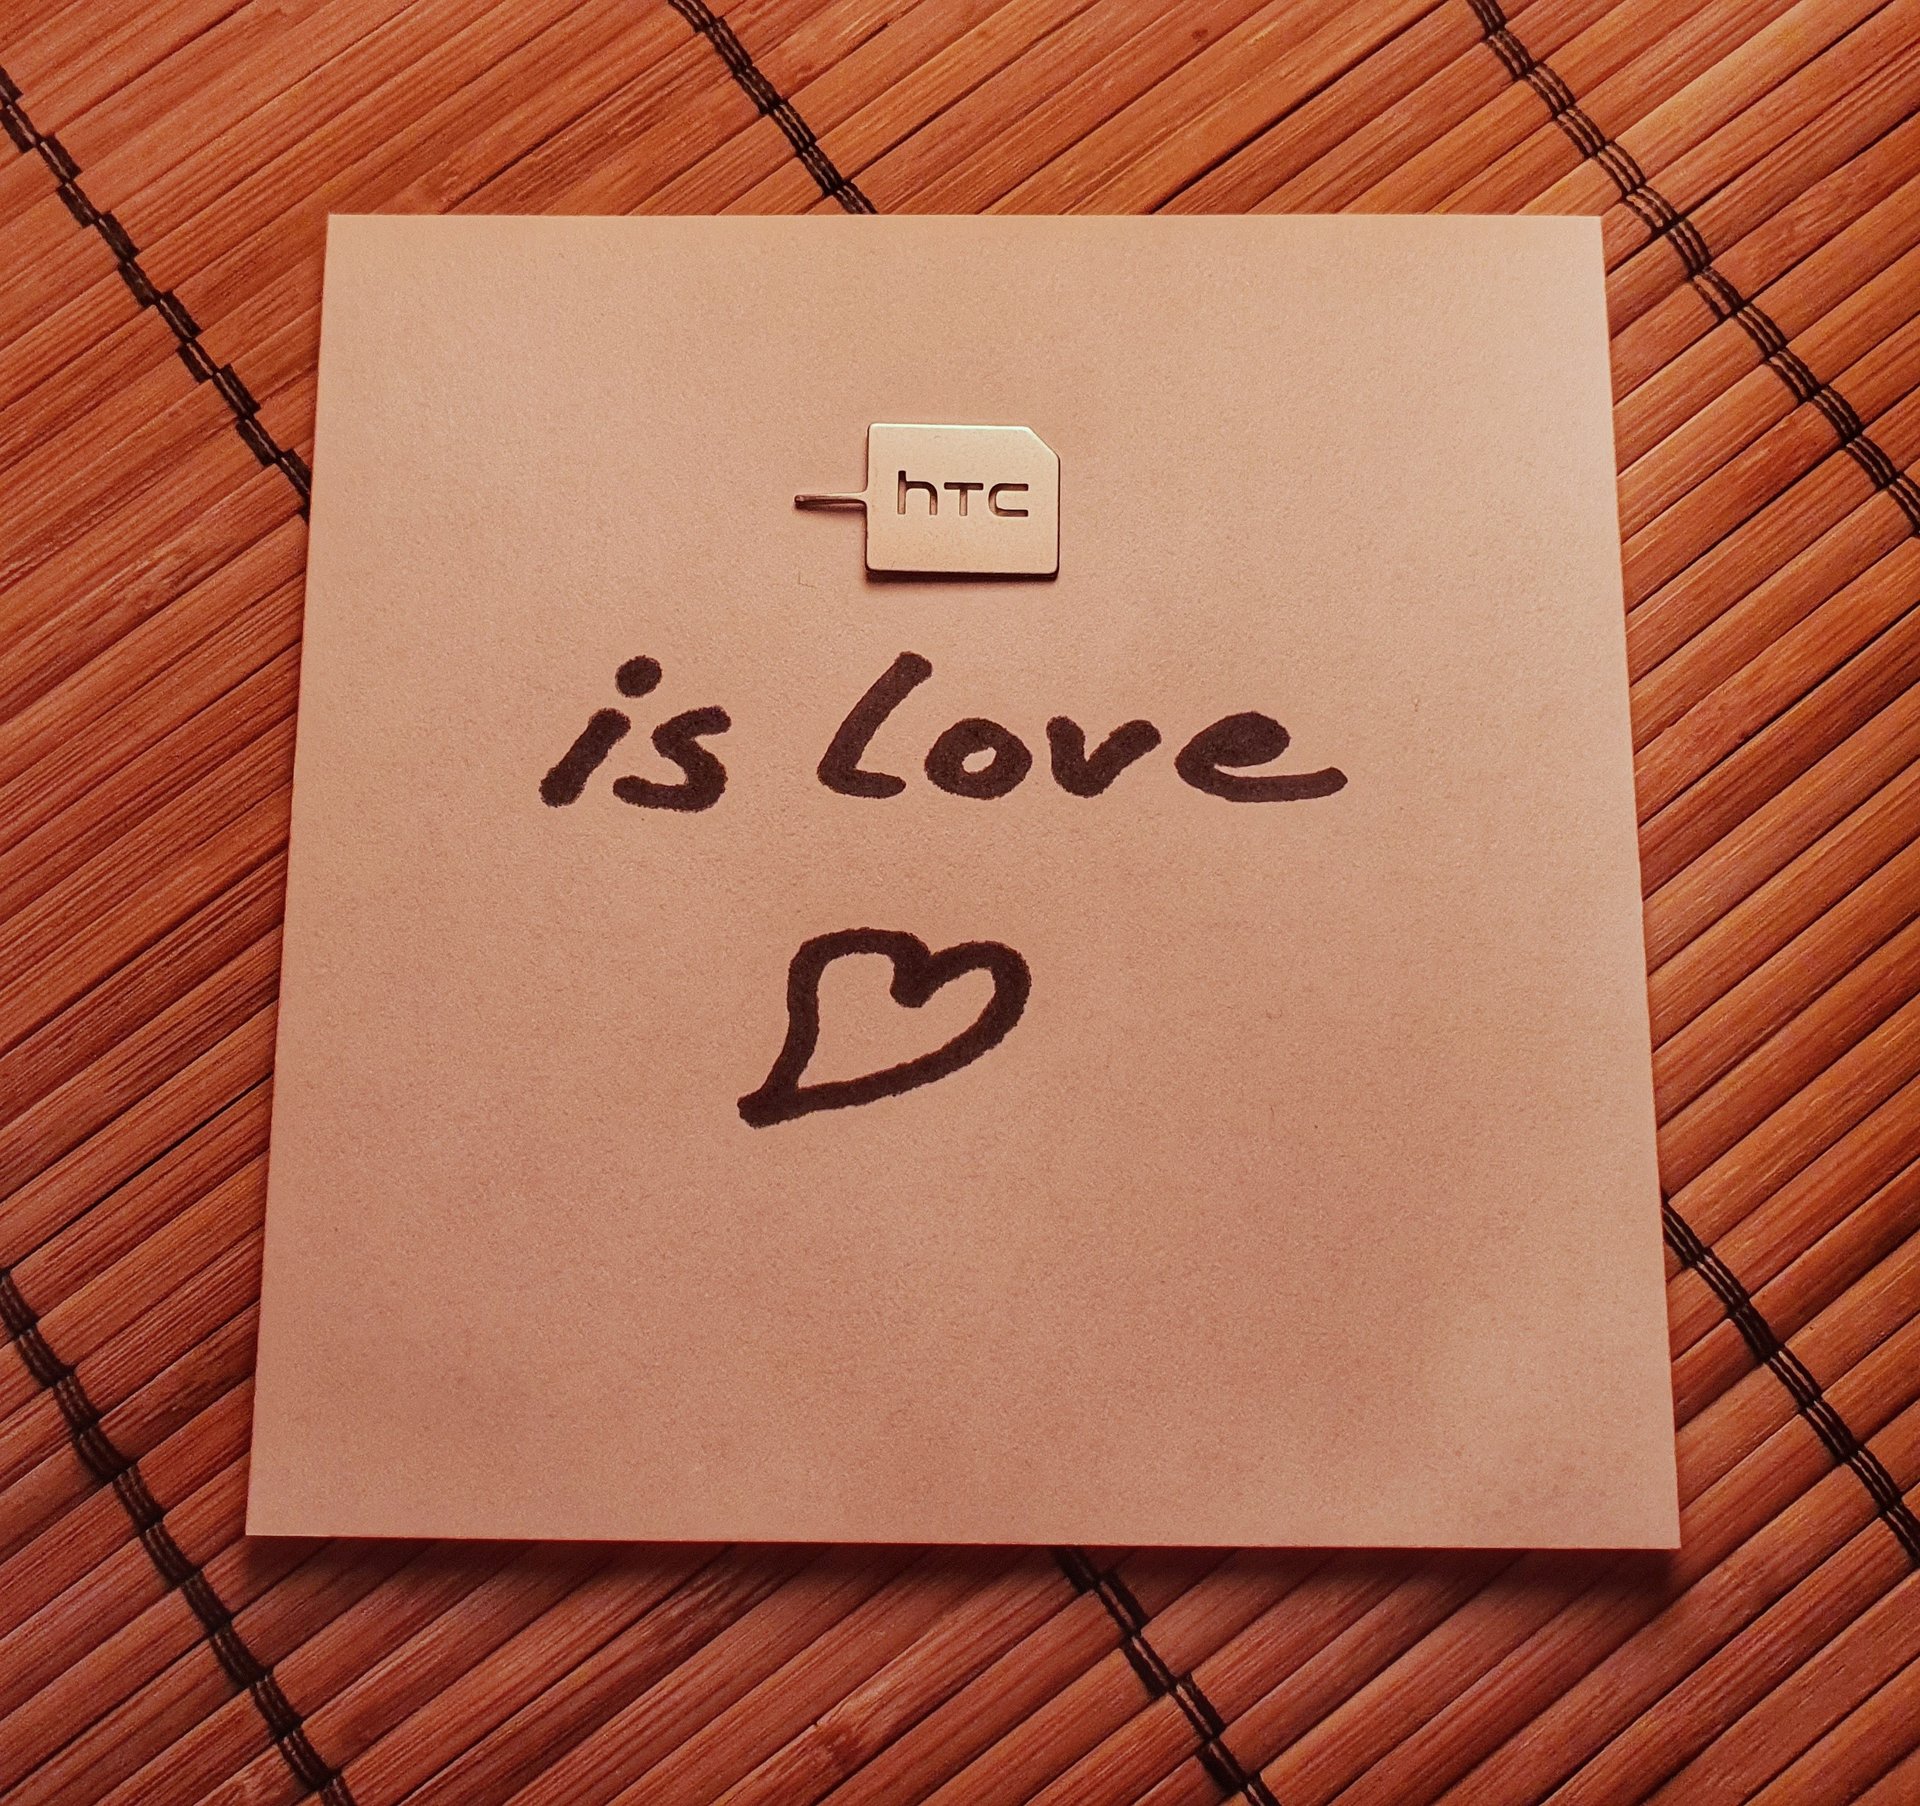 hTC
is love